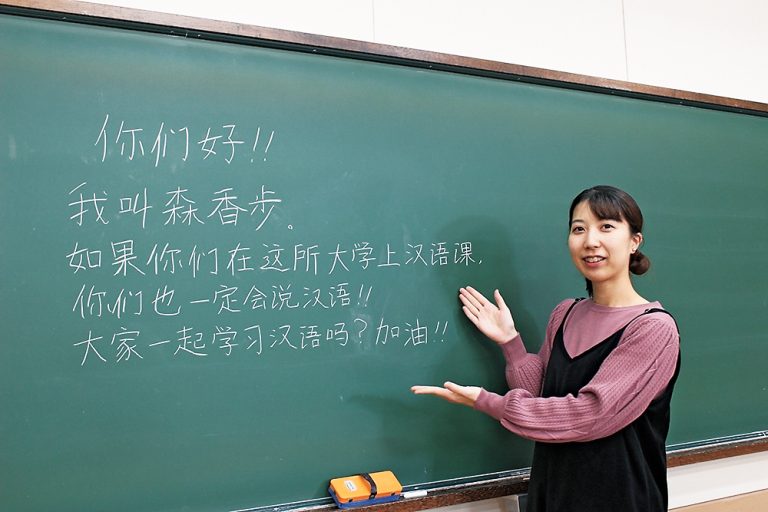 你们好!!
我叫森香步。
如果你们在这所大学上汉语课,
你们也一定会说汉语!!
大家一起学习汉语吗?加油!!